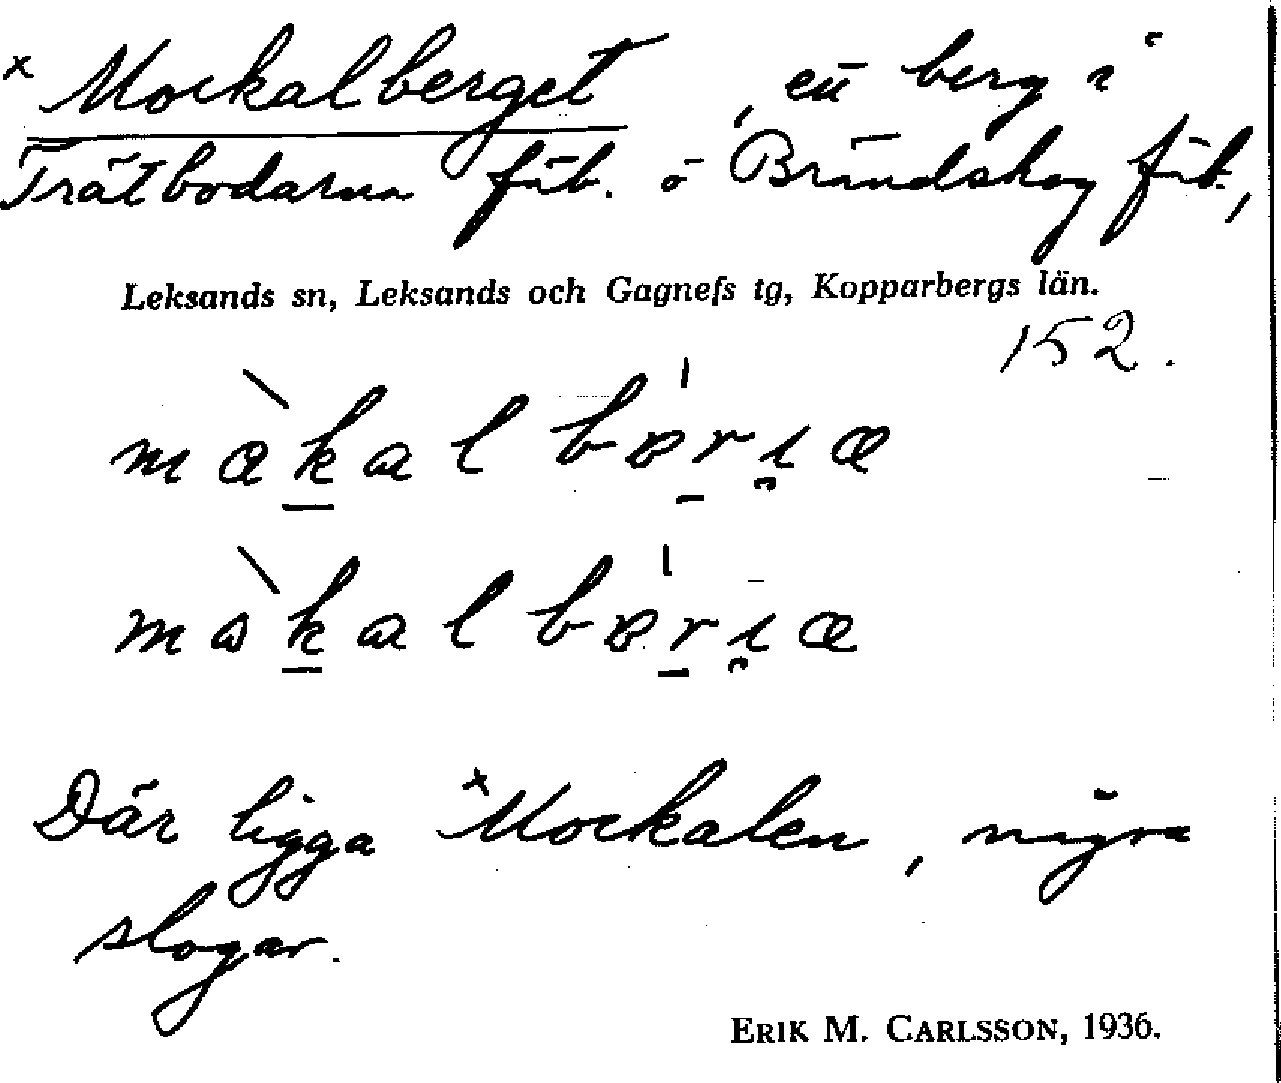 x Mockalberget, ett berg i
Trätbodarna fäb. o Brändskog fäb.,
Leksands sn, Leksands och Gagnefs tg, Kopparbergs län.
152.
Där ligga xMockalen, några
slogar.
ERIK M. CARLSSON, 1936.